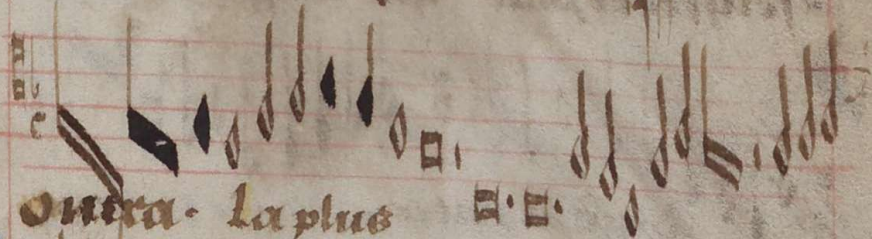 Contra. La plus